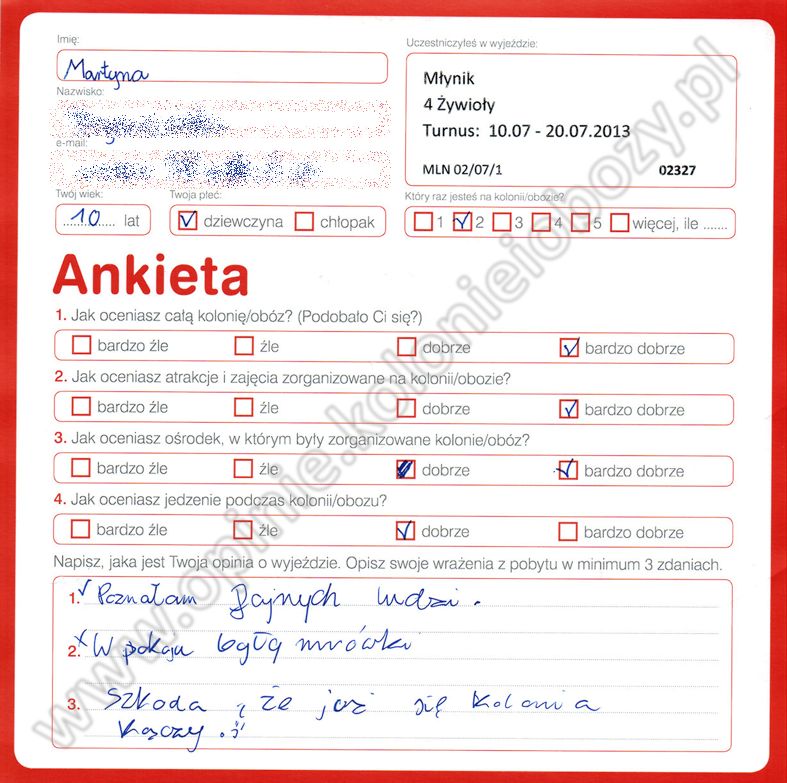 Imię:
Uczestniczyłeś w wyjeździe:
Martyna
Młynik
4 Żywioły
Turnus: 10.07 - 20.07.2013
MLN 02/07/1 02327
Nazwisko:
e-mail:
Twój wiek:
Twoja płeć:
Który raz jesteś na kolonii/obozie?
10 lat
dziewczyna chłopak
1 2 3 4 5 więcej, ile .......
Ankieta
1. Jak oceniasz całą kolonię/obóz? (Podobało Ci się?)
bardzo źle źle dobrze bardzo dobrze
2. Jak oceniasz atrakcje i zajęcia zorganizowane na kolonii/obozie?
bardzo źle źle dobrze bardzo dobrze
3. Jak oceniasz ośrodek, w którym były zorganizowane kolonie/obóz?
bardzo źle źle dobrze bardzo dobrze
4. Jak oceniasz jedzenie podczas kolonii/obozu?
bardzo źle źle dobrze bardzo dobrze
Napisz, jaka jest Twoja opinia o wyjeździe. Opisz swoje wrażenia z pobytu w minimum 3 zdaniach.
1. Poznałam fajnych ludzi.
2. W pokoju były mrówki
3. Szkoda, że już się kolonia
kączy. :)
www.opinie.kolonieiobozy.pl